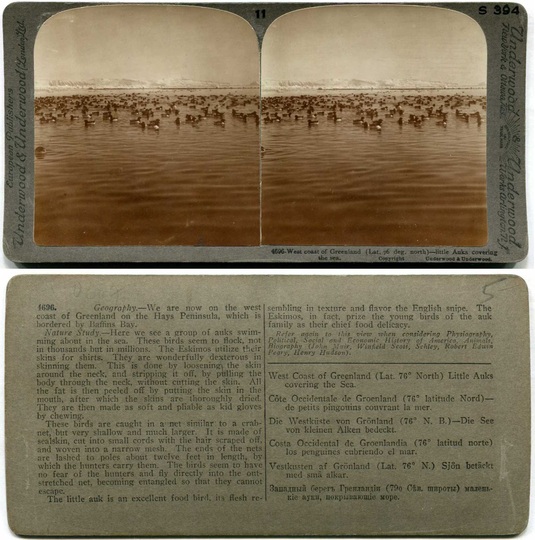 11
S 394
European Publishers
Underwood & Underwood
(London Ltd)
Underwood & Underwood
4696-West coast of Greenland (Lat. 76 deg. north)—little Auks covering
the sea. Copyright Underwood & Underwood.
4696. Geography.—We are now on the west
coast of Greenland on the Hays Peninsula, which is
bordered by Baffins Bay.
Nature Study.—Here we see a group of auks swim-
ming about in the sea. These birds seem to flock, not
in thousands but in millions. The Eskimos utilize their
skins for shirts. They are wonderfully dexterous in
skinning them. This is done by loosening the skin
around the neck, and stripping it off, by pulling the
body through the neck, without cutting the skin. All
the fat is then peeled off by putting the skin in the
mouth, after which the skins are thoroughly dried.
They are then made as soft and pliable as kid gloves
by chewing.
These birds are caught in a net similar to a crab-
net, but very shallow and much larger. It is made of
sealskin, cut into small cords with the hair scraped off,
and woven into a narrow mesh. The ends of the nets
are lashed to poles about twelve feet in length, by
which the hunters carry them. The birds seem to have
no fear of the hunters and fly directly into the out-
stretched net, becoming entangled so that they cannot
escape.
The little auk is an excellent food bird, its flesh re-
sembling in texture and flavor the English snipe. The
Eskimos, in fact, prize the young birds of the auk
family as their chief food delicacy.
Refer again to this view when considering Physiography,
Political, Social and Economic History of America, Animals,
Biography (John Muir, Winfield Scott, Schley, Robert Edwin
Peary, Henry Hudson).
West Coast of Greenland (Lat. 76° North) Little Auks
covering the Sea.
Côte Occidentale de Groenland (latitude Nord)—
de petits pingouins couvrant la mer.
Die Westküste von Grönland (76° N. B.)—Die See
von kleinen Alken bedeckt.
Costa Occidental de Groenlandia (76° latitud norte)
los penguines cubriendo el mar.
Vestkusten af Grönland (Lat. 76° N.) Sjön betäckt
med små alkar.
Западный берегъ Гренландіи (79о Сѣв. широты) малень-
кіе ауки, покрывающіе море.